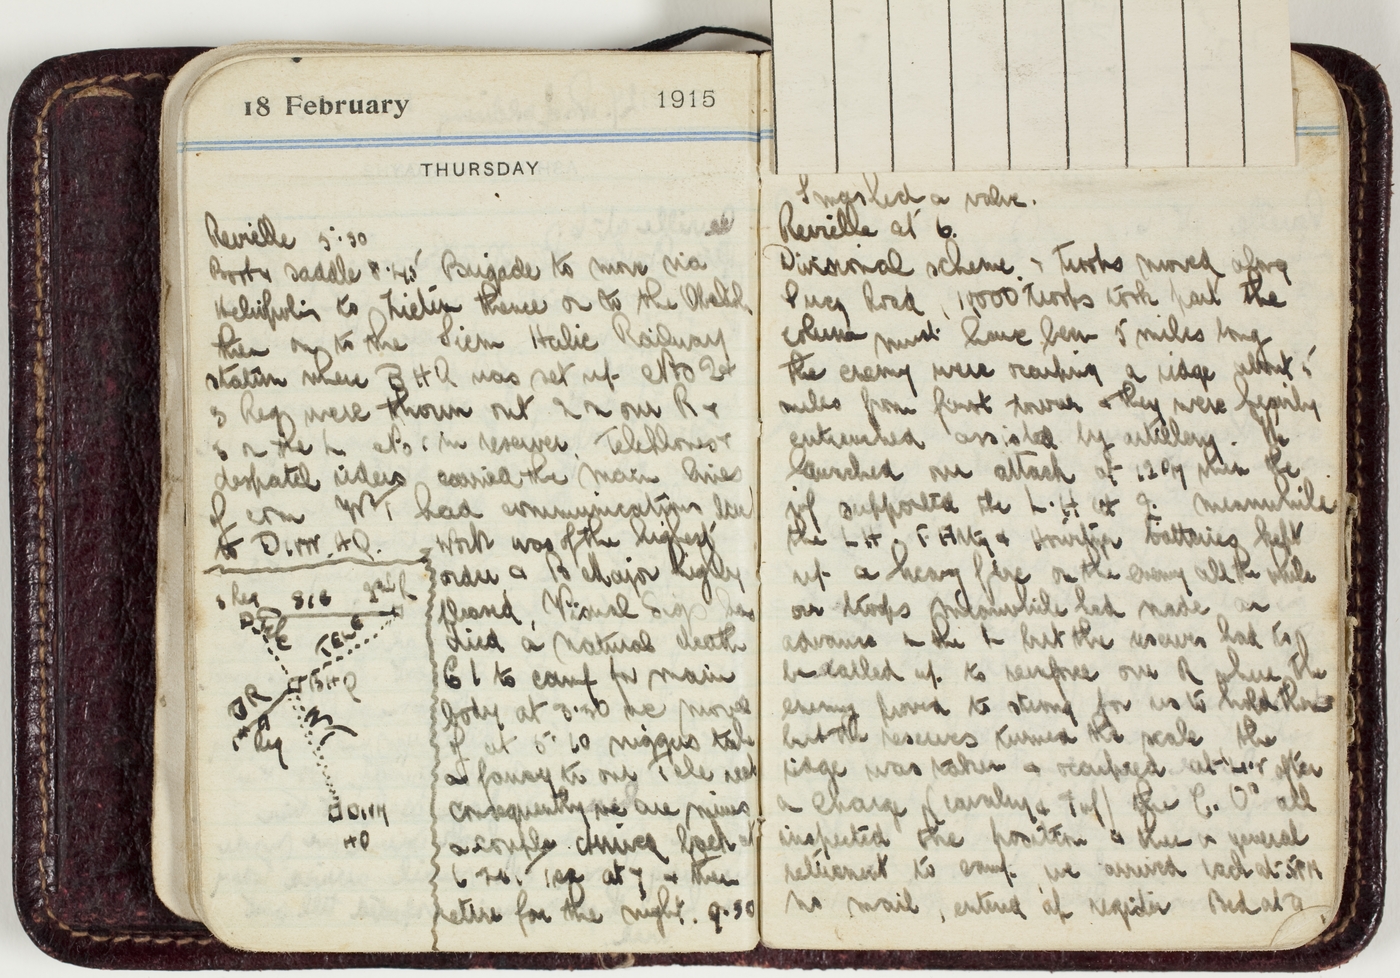 18 February 1915
THURSDAY
Reveille 5.30
Boot & saddle 8.45 Brigade to move via
Heliopolis to Zietun thence on to the
then on to the Siem Halic Railway
station where BHQ was set up. No 2 &
3 Reg were thrown out 2 on our R &
3 on the L. No 1 in reserve. Telephones &
despatch riders carried the main lines
of com had communications
to Divn. HQ.
work was of the highest
order & B Major highly
pleased, Visual Sig has
died a natural death
61 to camp for main
body at 3.30 we moved
of at 5.10 niggers took
a fancy to our Tele
consequently we are minus
a couple. Arrived back at
6.45 tea at 7 & then
retire for the night. 9.30
3 Reg 818 2nd R
TELE
TELE
BHQ
DR
1st Reg
DIVN
HQ
Smashed a valve.
Reveille at 6.
Divisional scheme. troops moved along
Suez Road, 10000 troops took part the
column must have been 5 miles long
the enemy were occupying a ridge about 5
miles from first tower & they were heavily
entrenched assisted by artillery. We
launched our attack at then the
inf supported the L.H at 9. meanwhile
the L.H. & Howitzer batteries kept
up a heavy fire on the enemy all the while
our troops meanwhile had made an
advance on the L but the reserves had to
be called up to reinforce our R where the
enemy proved to strong for us to hold them
but the reserves turned the scale the
ridge was taken & occupied after
a charge (cavalry & Inf) the C.O's all
inspected the position & then a general
retirement to camp. we arrived back at 5PM
No mail, entered up register Bed at 9